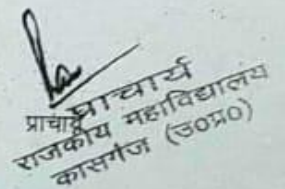 प्राचार्य
प्राचार्य
राजकीय महाविद्यालय
कासगंज (उ०प्र०)